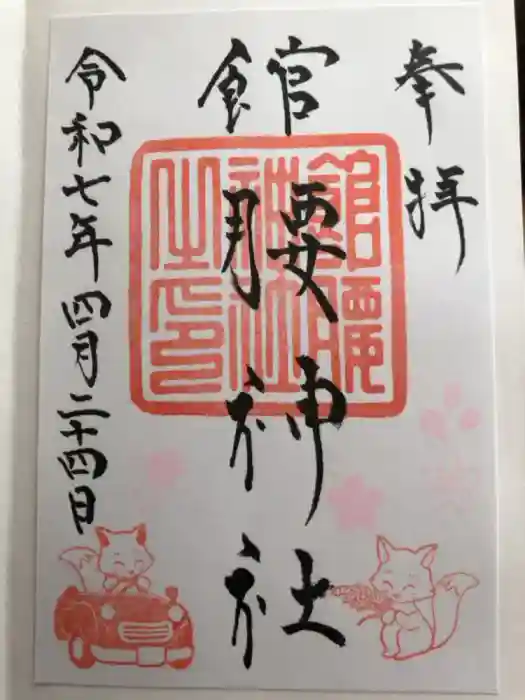 奉拝
館腰神社
館腰
神社
之印
令和七年四月二十四日